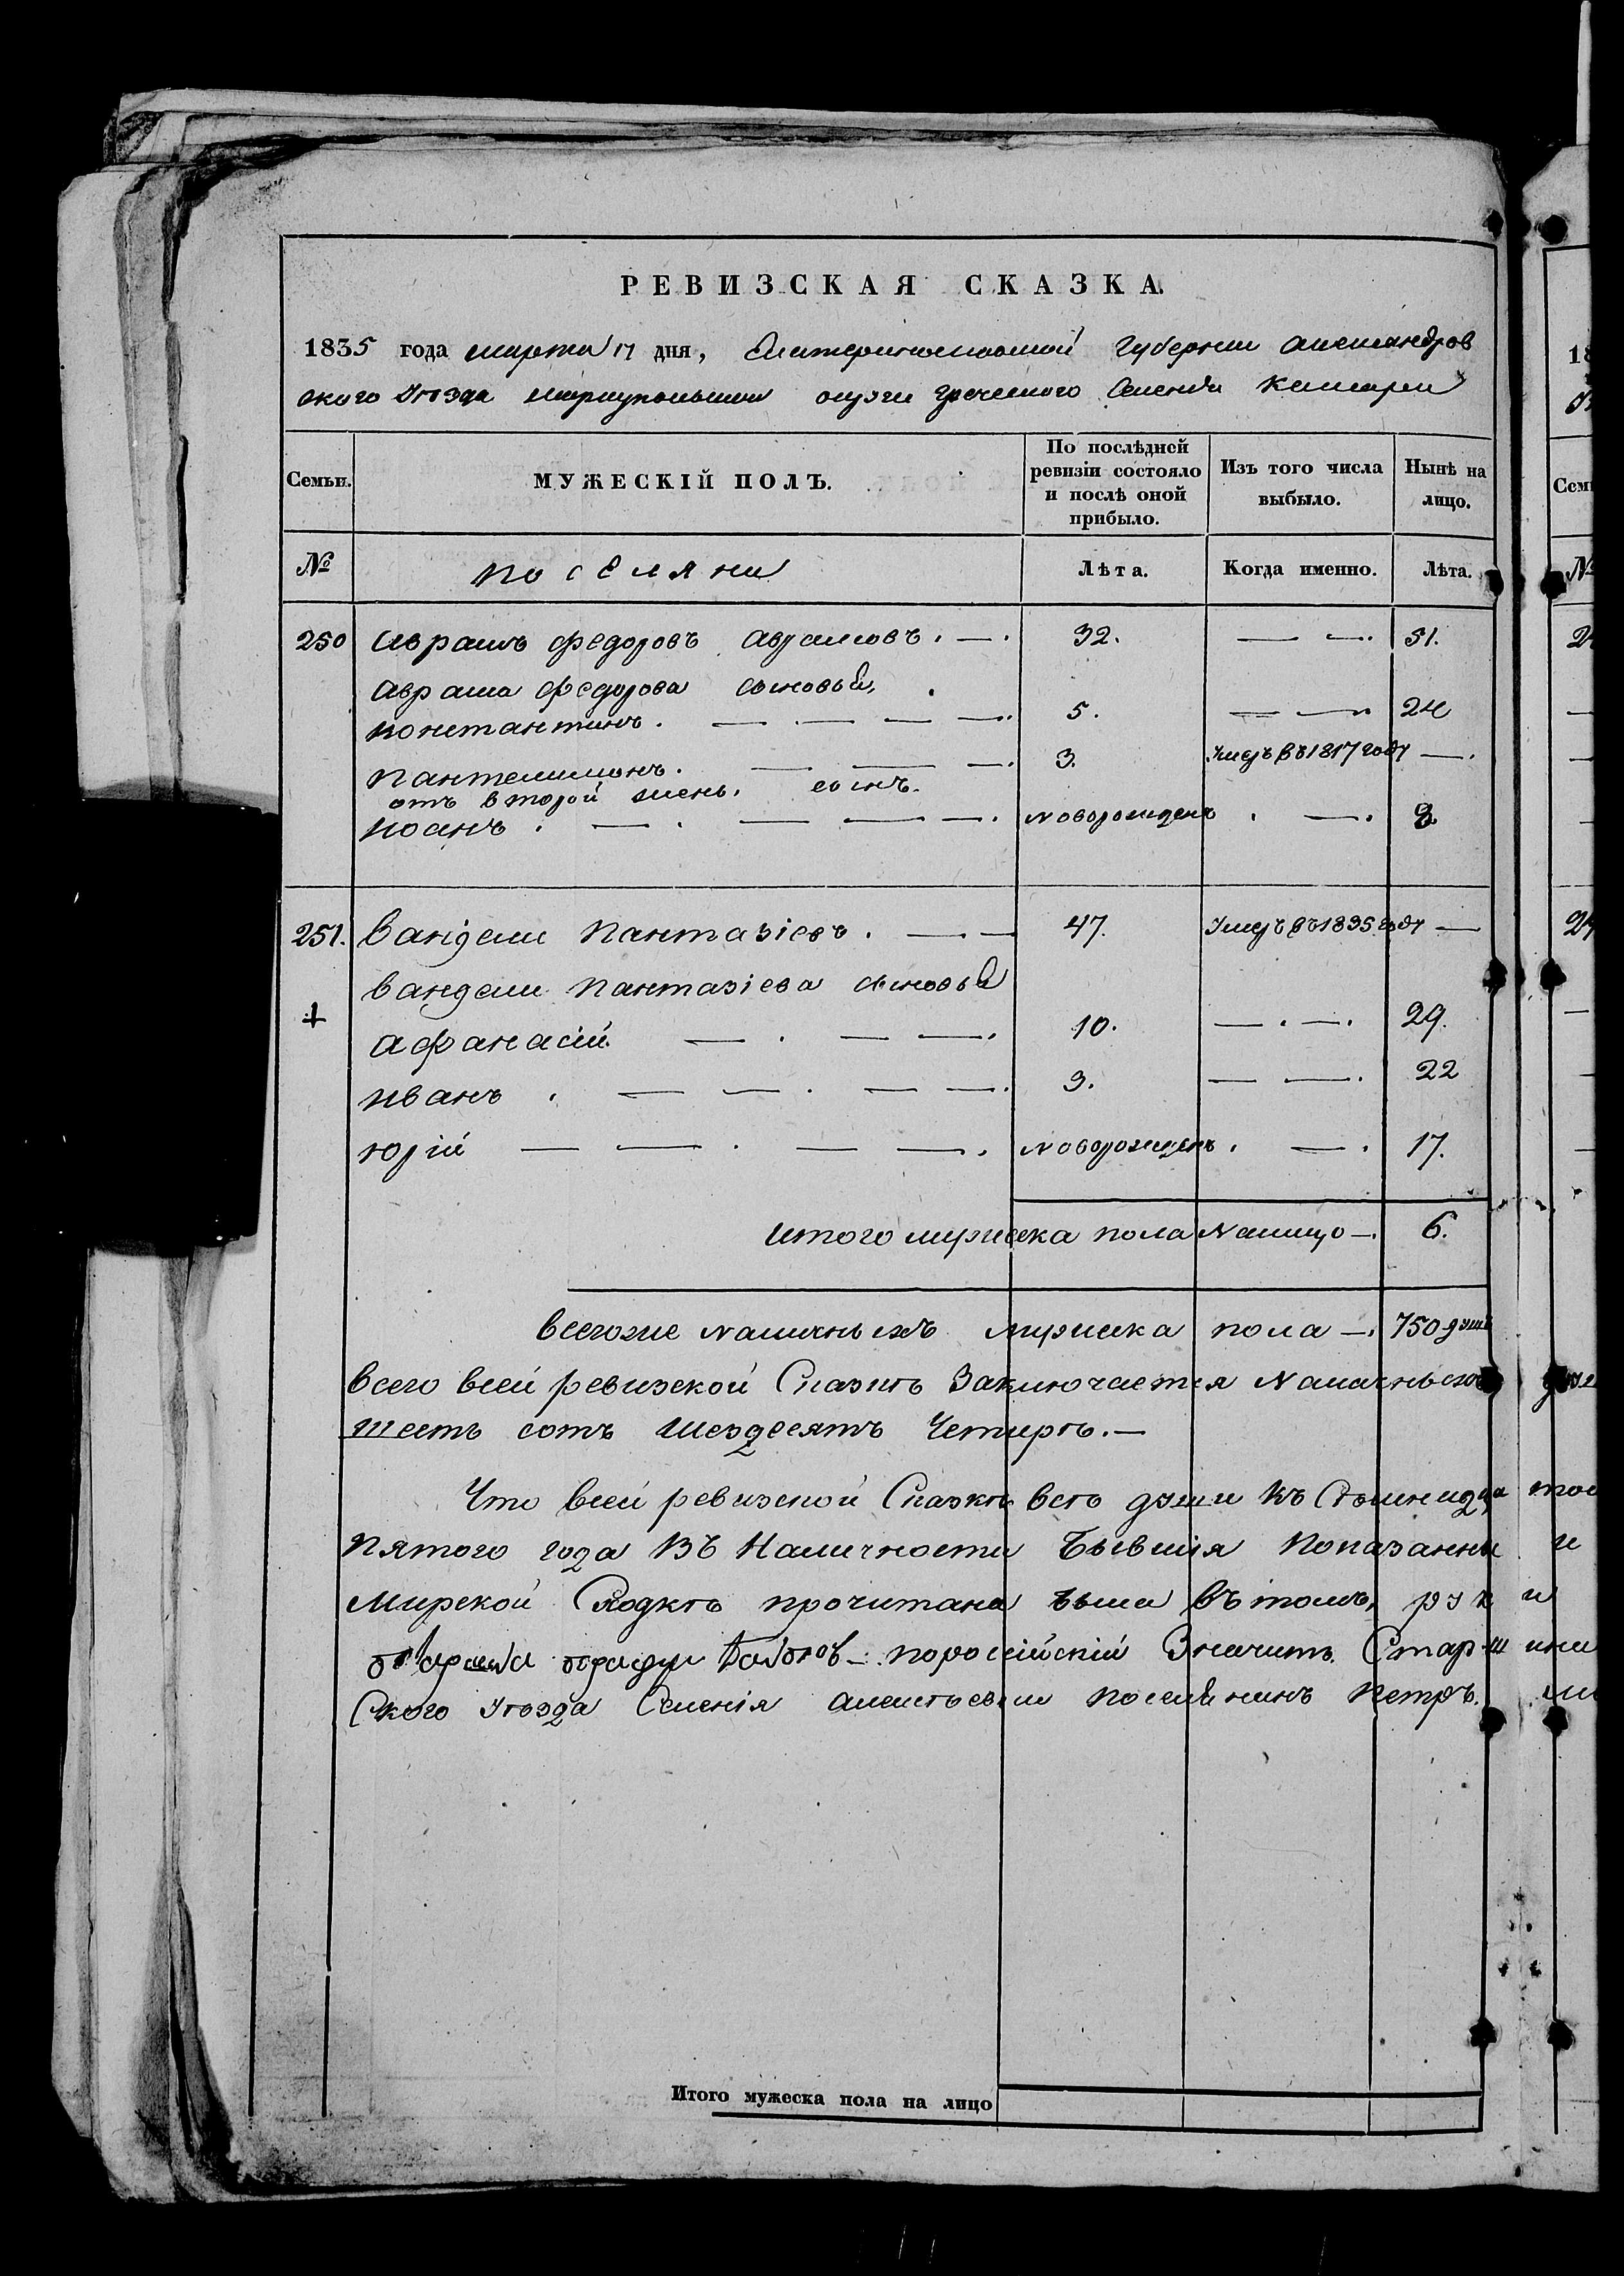 РЕВИЗСКАЯ СКАЗКА.
1835 года марта 17 дня, Екатеринославской Губернии Александров
ского Уѣзда Мариупольской округи греческого Селенія
Семьи.
МУЖЕСКІЙ ПОЛЪ.
По послѣдней ревизіи состояло и послѣ оной прибыло.
Изъ того числа выбыло.
Нынѣ на лицо.
№
Поселяни
Лѣта.
Когда именно.
Лѣта.
250 Аврамъ Федоровъ Аврамовъ. — . 32. — —. 51.
Аврама Федорова сыновья,
Константинъ. — — — —. 5. — — 24
Пантелимонъ. — — —. 3. Умеръ въ 1817 году —.
отъ второй жены. сынъ.
Иоанъ. — . — — —. Новорожденъ . —. 8.
251. Вандели Пантазіевъ. — — 47. Умеръ въ 1835 году —
Вандели Пантазіева сыновья
Афанасій. — . — —. 10. — . —. 29.
Иванъ . — — . — —. 3. — —. 22
Юрій — — . — —. Новорожденъ . — . 17.
Итого мужеска пола Налицо —. 6.
Всегоже Наличныхъ мужеска пола —. 750 душъ
Всего всей ревизской Сказкѣ Заключается Наличныхъ
шесть сотъ шездесятъ Четырѣ. —
Что всей ревизской Сказкѣ всѣ души къ
Пятого года Въ Наличности Бывшія Показанны и
Мирской Сходкѣ прочитана была въ томъ, рук и
пороссійскій Значитъ. Старш ина
Ского Уѣзда Селенія Поселянинъ Петръ.
Итого мужеска пола на лицо